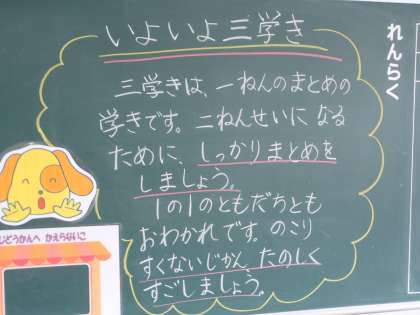 いよいよ三学き
三学きは、一ねんのまとめの
学きです。二ねんせいになる
ために、しっかりまとめを
しましょう。
1の1のともだちとも
おわかれです。のこり
すくないじかん たのしく
すごしましょう。
れんらく
じどうかんへ かえらないこ